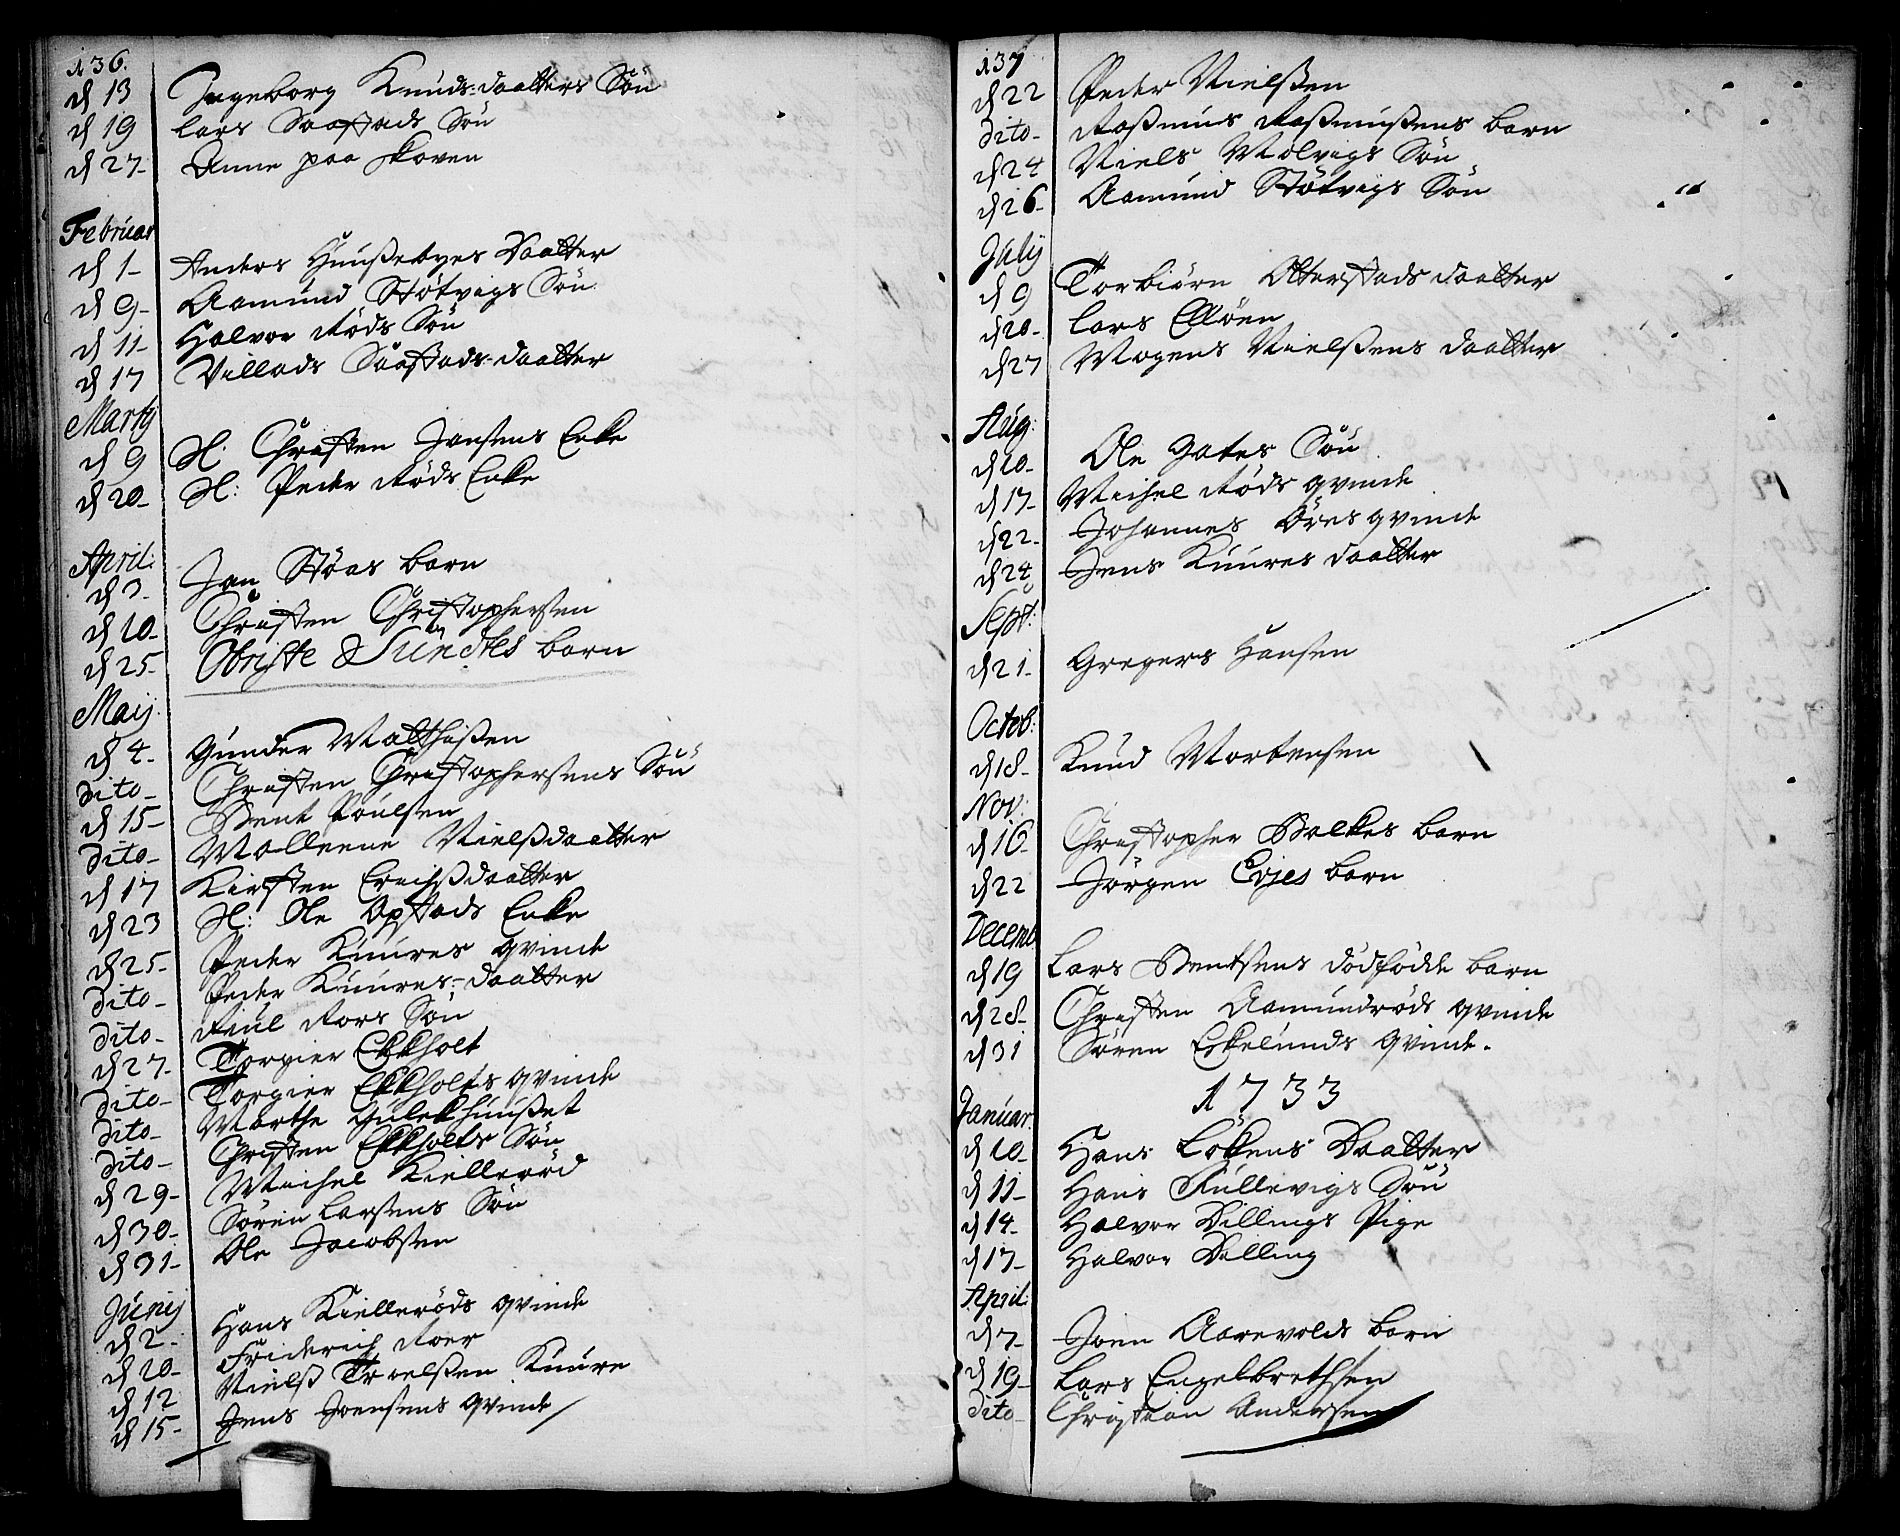 136.
d 13 Ingeborg Knuds-daatters Søn
d 19 Lars Saastads Søn
d 27- Anne paa Skoven
Februar
d 1- Anders Huusebyes Daatter
d 9- Aamund Støtvigs Søn
d 11- Halvor Røds Søn
d 17 Villads Saastads-daatter
Martij
d 9 Sl: Christen Jansens Enke
d 20- Sl: Peder Røds Enke
April:
d 3- Jan Støas barn
d 10- Christen Christophersen
d 25- Obriste Sundtes barn
Maij
d 4- Gunder Matthisen
dito- Christen Christophersens Søn
d 15- Bent Poulsen
dito- Malleene Nielsdaatter
d 17 Kirsten Erichsdaatter
d 23 Sl: Ole Opstads Enke
d 25- Peder Kuures qvinde
dito- Peder Kuures-daatter
dito- Poul Rørs Søn
d 27- Torgier Ekholt
dito- Torgier Ekholts qvinde
dito- Marthe Gulehuuset
dito- Christen Ekholts Søn
d 29- Michel Kiellerød
d 30- Søren Larsens Søn
d 31- Ole Jacobsen
Junij
d 2- Hans Kiellerøds qvinde
d 10- Friderich Roer
d 12 Niels Troelsen Kuure
d 15- Jens Joensens qvinde
137
d 22 Peder Nielsen
dito- Rasmus Rasmusens barn
d 24 Niels Molvigs Søn
d 26- Aamund Støtvigs Søn
Julij
d 9 Torbiørn Otterstads daatter
d 20- Lars Elløen
d 27 Mogens Nielsens daatter
Aug:
d 10- Ole Gates Søn
d 17- Michel Røds qvinde
d 22- Johannes Øres qvinde
d 24 Jens Kuures daatter
Sept:
d 21- Gregers Hansen
Octob:
d 18- Knud Mortensen
Nov:
d 16- Christopher Balkes barn
d 22 Jørgen Evjes barn
Decemb
d 19 Lars Bentsens dødfødde barn
d 28- Christen Aamundrøds qvinde
d 31 Søren Eskelunds qvinde.
1733
Januar
d 10- Hans Løkkens Daatter
d 11- Hans Kullevigs Søn
d 14- Halvor Dillings Pige
d 17- Halvor Dilling
April:
d 7- Joen Aarevolds barn
d 19- Lars Engelbrethsen
dito- Christian Andersen